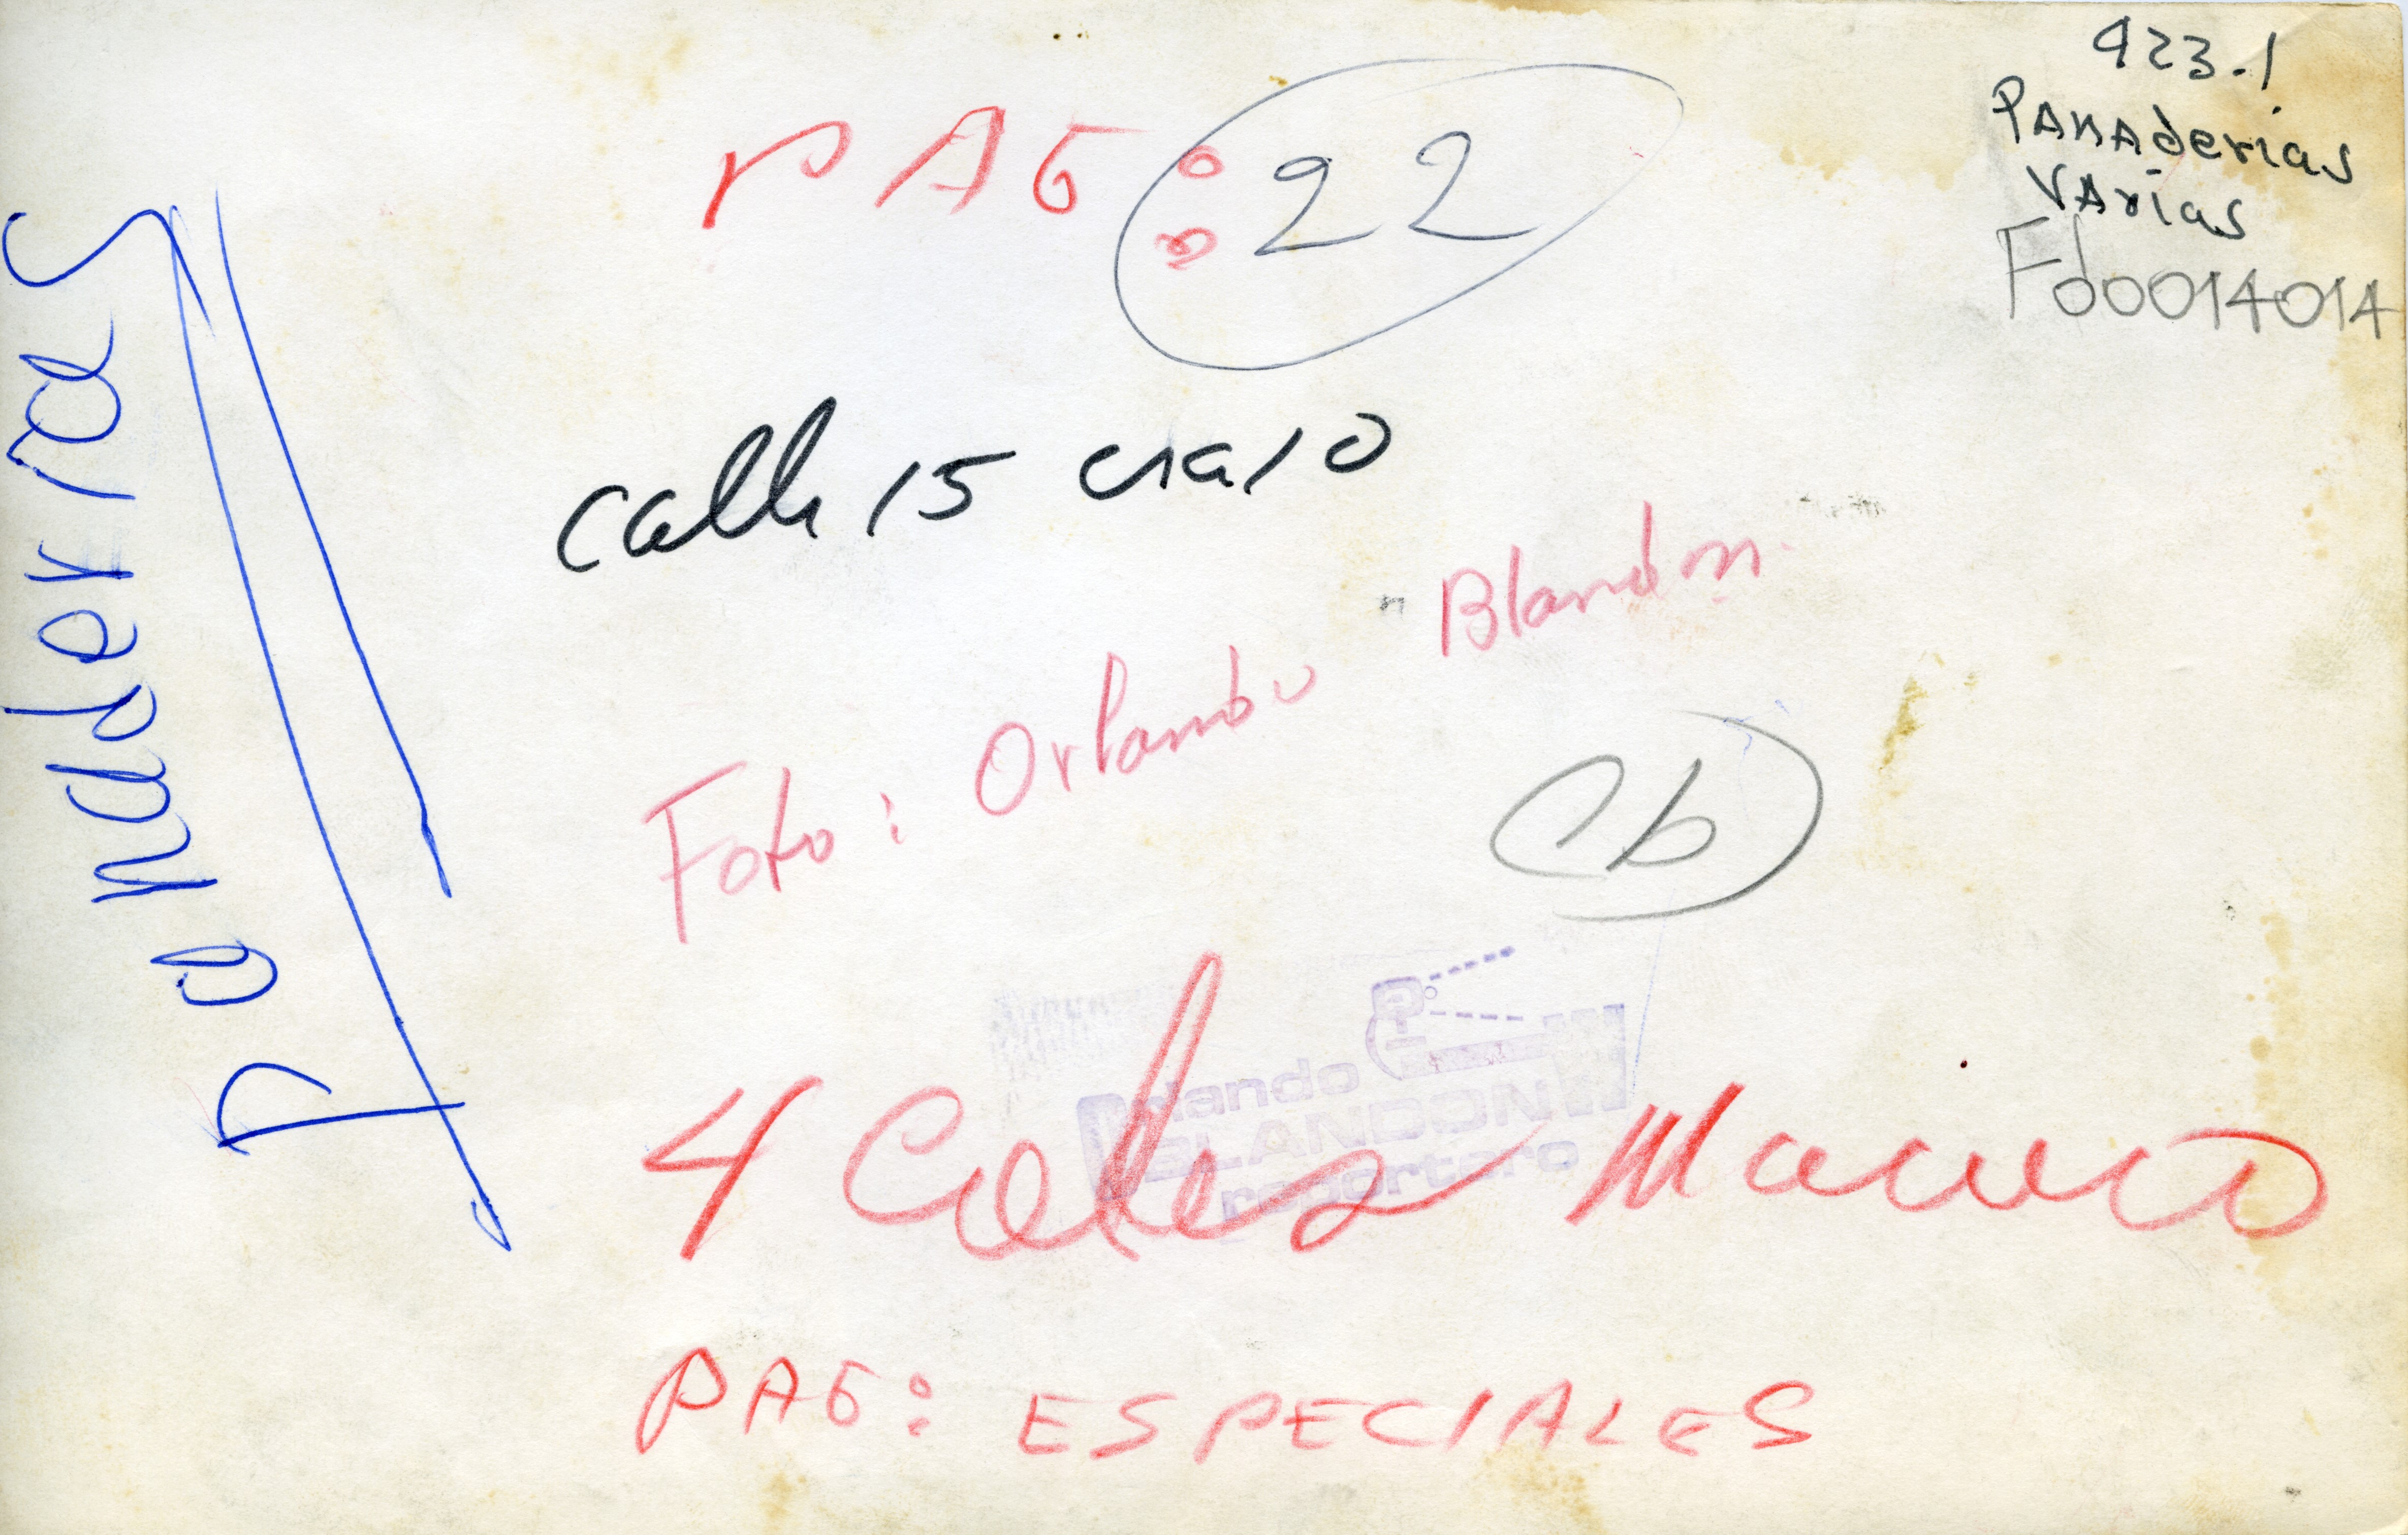 923.1
PANAderías
VArias
Fd0014014
PAG: 22
Panaderias
calle 15 cra 10
Foto: Orlando Blandón
Cb
Orlando
BLANDON
reportero
4 Cols
PAG: ESPECIALES